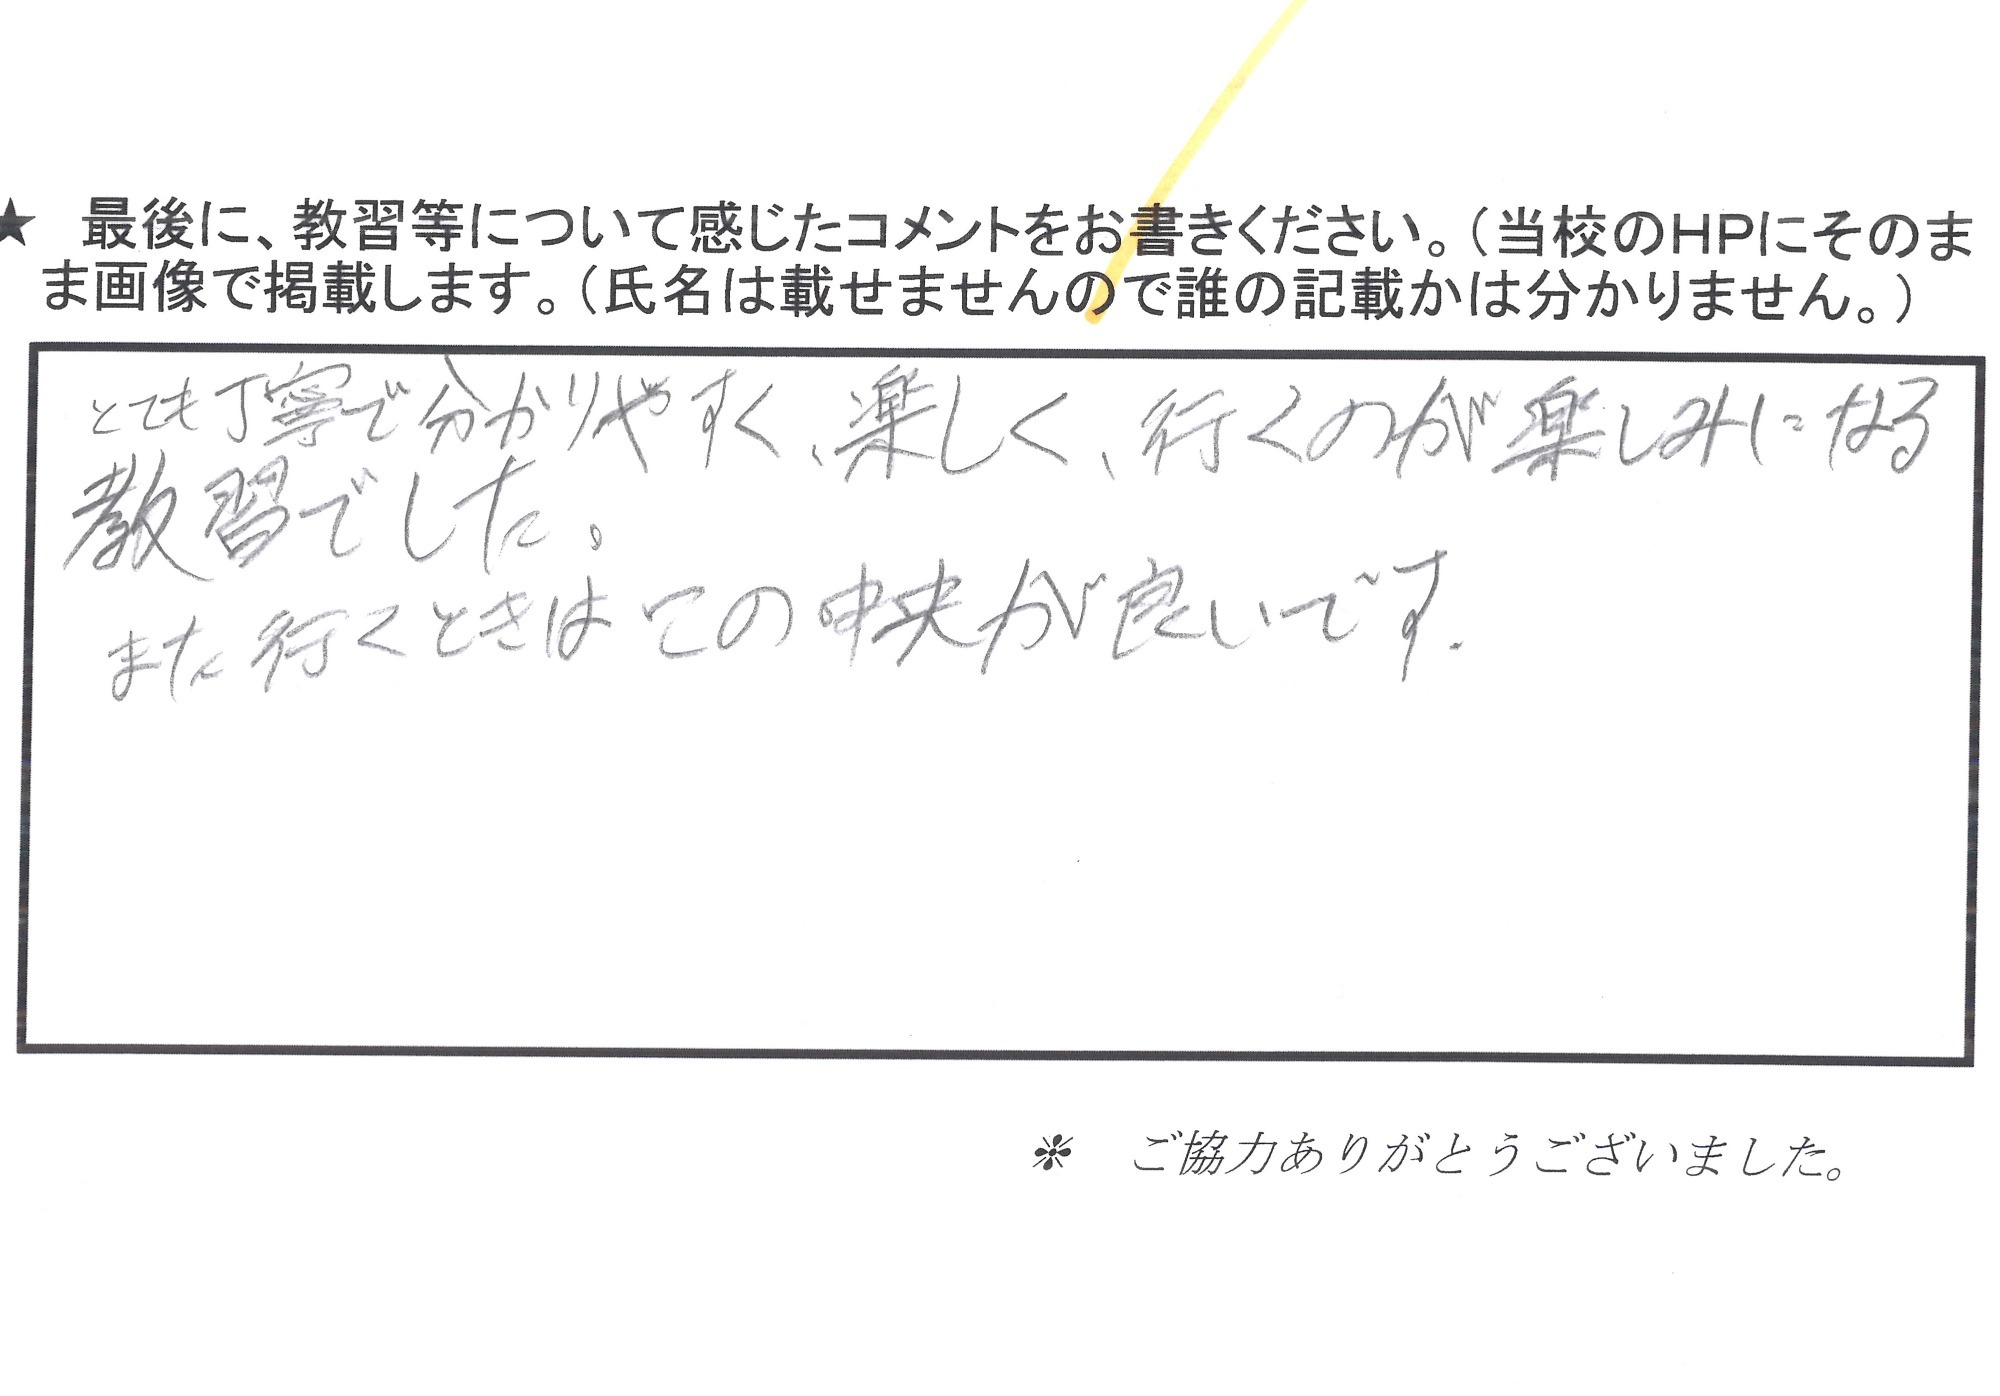 ★ 最後に、教習等について感じたコメントをお書きください。(当校のHPにそのま
ま画像で掲載します。(氏名は載せませんので誰の記載かは分かりません。)
とても丁寧で分かりやすく、楽しく、行くのが楽しみになる
教習でした。
また行くときはこの中央が良いです.
※ ご協力ありがとうございました。